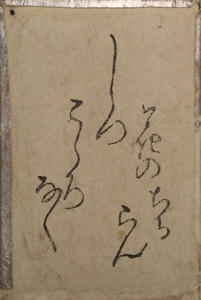 しつ
こゝろ
なく
花の
ちる
らん